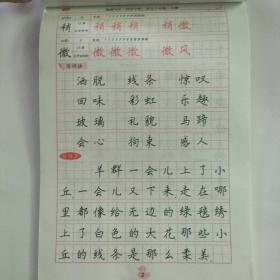 稍 稍 稍 稍 稍 微
微 微 微 微 微 风
写词语
洒脱 线条 惊叹
回味 彩虹 乐趣
玻璃 礼貌 马蹄
会心 拘束 感人
羊群一会儿上了小
丘，一会儿又下来，走在哪
里都像给无边的绿毯绣
上了白色的大花。那些小
丘的线条是那么柔美
2